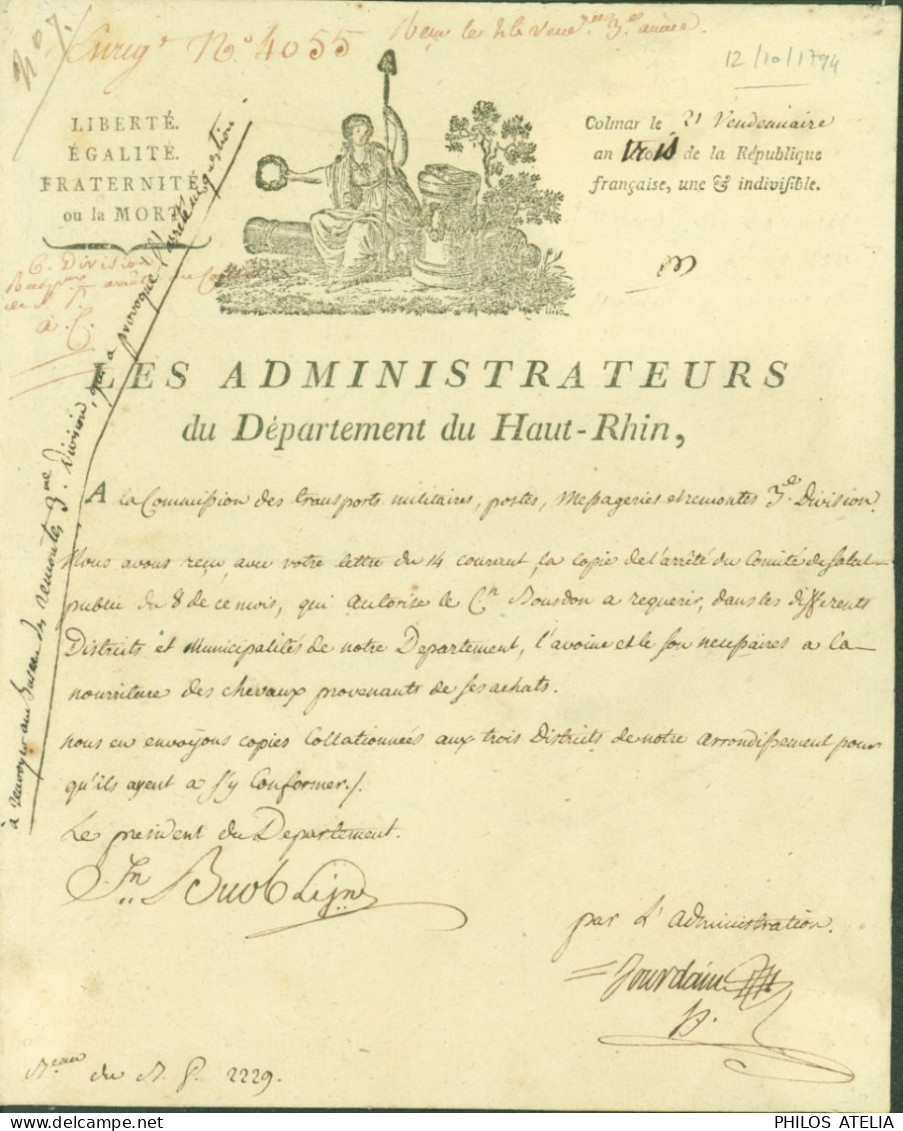 No 7.
Enrig. No. 4055
Reçu le Vend. 3e. année.
12/10/1794
LIBERTÉ.
ÉGALITÉ.
FRATERNITÉ
ou la MORT.
Colmar le 21 Vendemiaire
an trois de la République
françaiſe, une & indiviſible.
6. Division
arrêté
LES ADMINISTRATEURS
du Département du Haut-Rhin,
A la Commission des transports militaires, postes, Messageries et remontes 3e. Division.
Nous avons reçu, avec votre lettre du 14 courant, la copie de l'arrêté du Comité de Salut
public du 8 de ce mois, qui autorise le Cn. Bourdon a requerir, dans les differents
Districts et Municipalités de notre Departement, l'avoine et le son necessaires a la
nourriture des chevaux provenants de ses achats.
nous en envoyons copies Collationnées aux trois Districts de notre arrondissement pour
qu'ils ayent a s'y Conformer ./.
Le president du Departement.
Jn Buob
par L'administration.
Jourdain
à renvoyer au bureau des remontes 3me Division, qui a provoqué l'arrêté en question
Bau du 2229.
PHILOS ATELIA